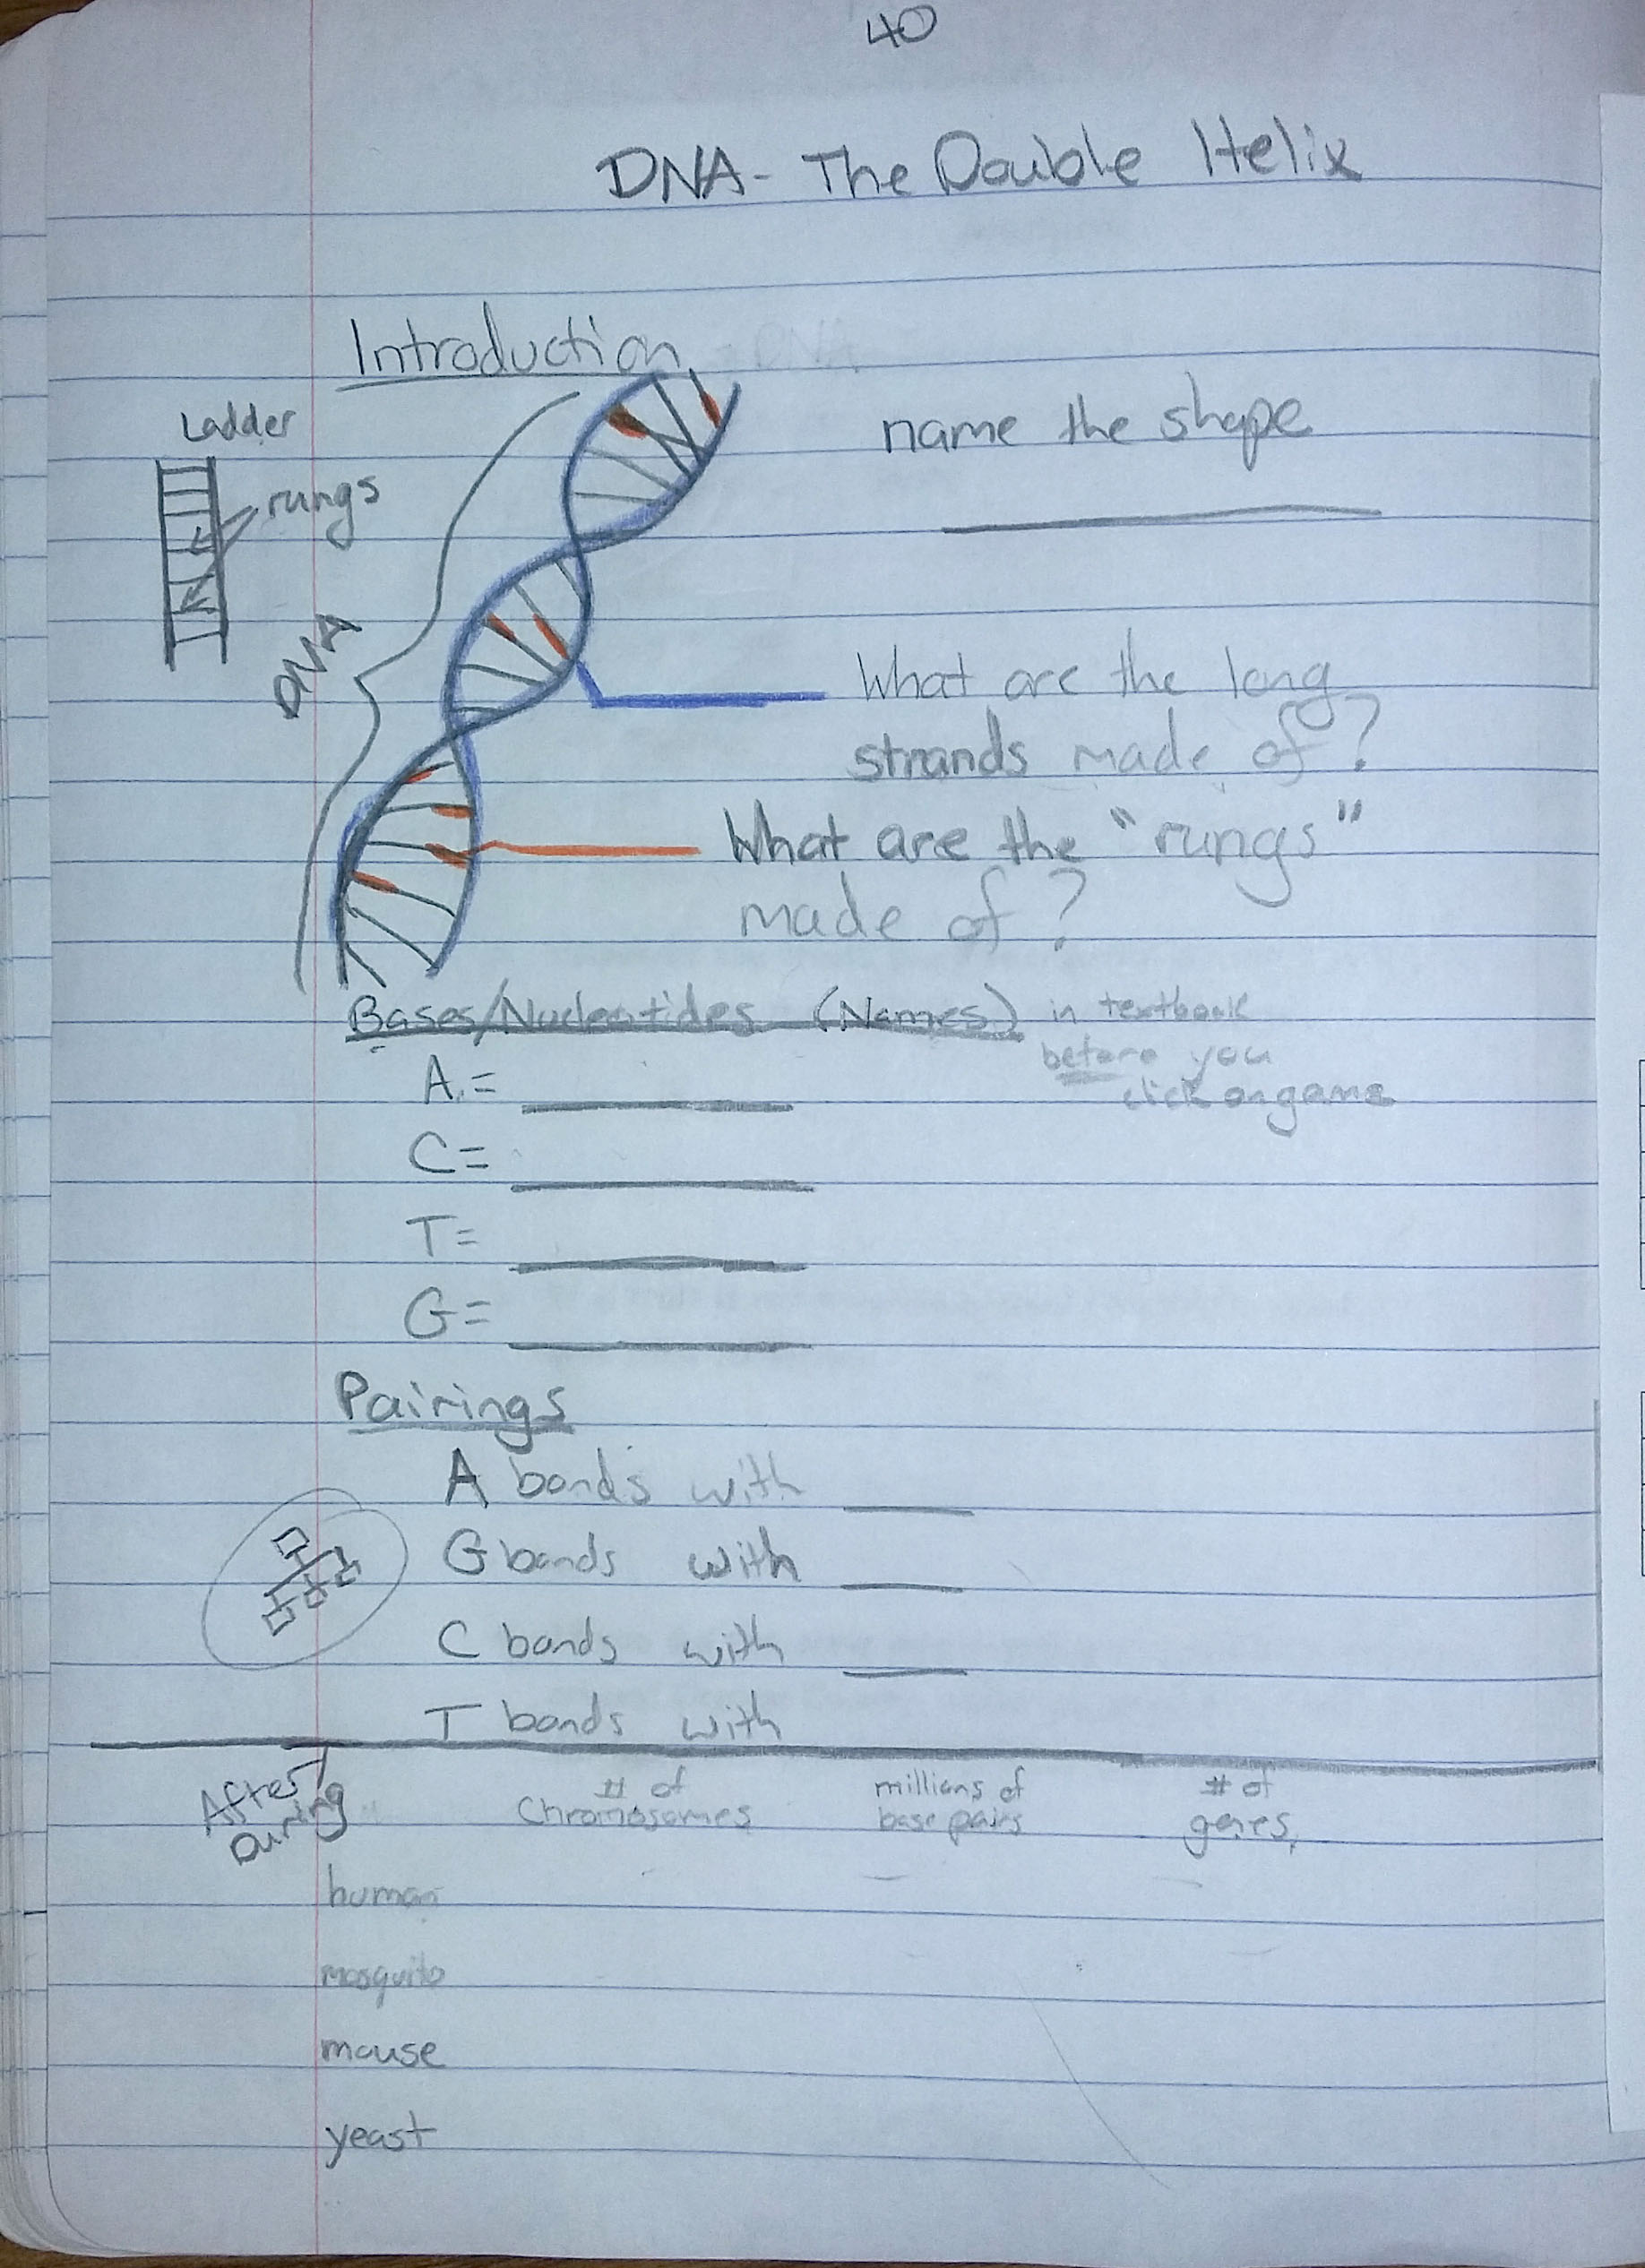 40
DNA - The Double Helix
Introduction
Ladder
rungs
DNA
name the shape
What are the long
strands made of?
What are the "rungs"
made of?
Bases/Nucleotides (Names) in textbook
before you
click on game
A =
C =
T =
G =
Pairings
A bonds with
G bonds with
C bonds with
T bonds with
After/
During
# of
Chromosomes
millions of
base pairs
# of
genes
human
mosquito
mouse
yeast